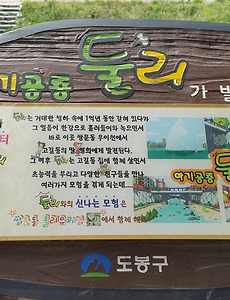 기공룡 둘리가 발
둘리는 거대한 빙하 속에 1억년 동안 갇혀 있다가
그 얼음이 한강으로 흘러들어와 녹으면서
바로 이곳 쌍문동 우이천에서
고길동의 딸 영희에게 발견된다.
그 이후 둘리는 고길동 집에 함께 살면서
초능력을 부리고 다양한 친구들을 만나
여러가지 모험을 겪게 되는데......
둘리와의 신나는 모험은
에서 함께 해
아기공룡 둘
도봉구